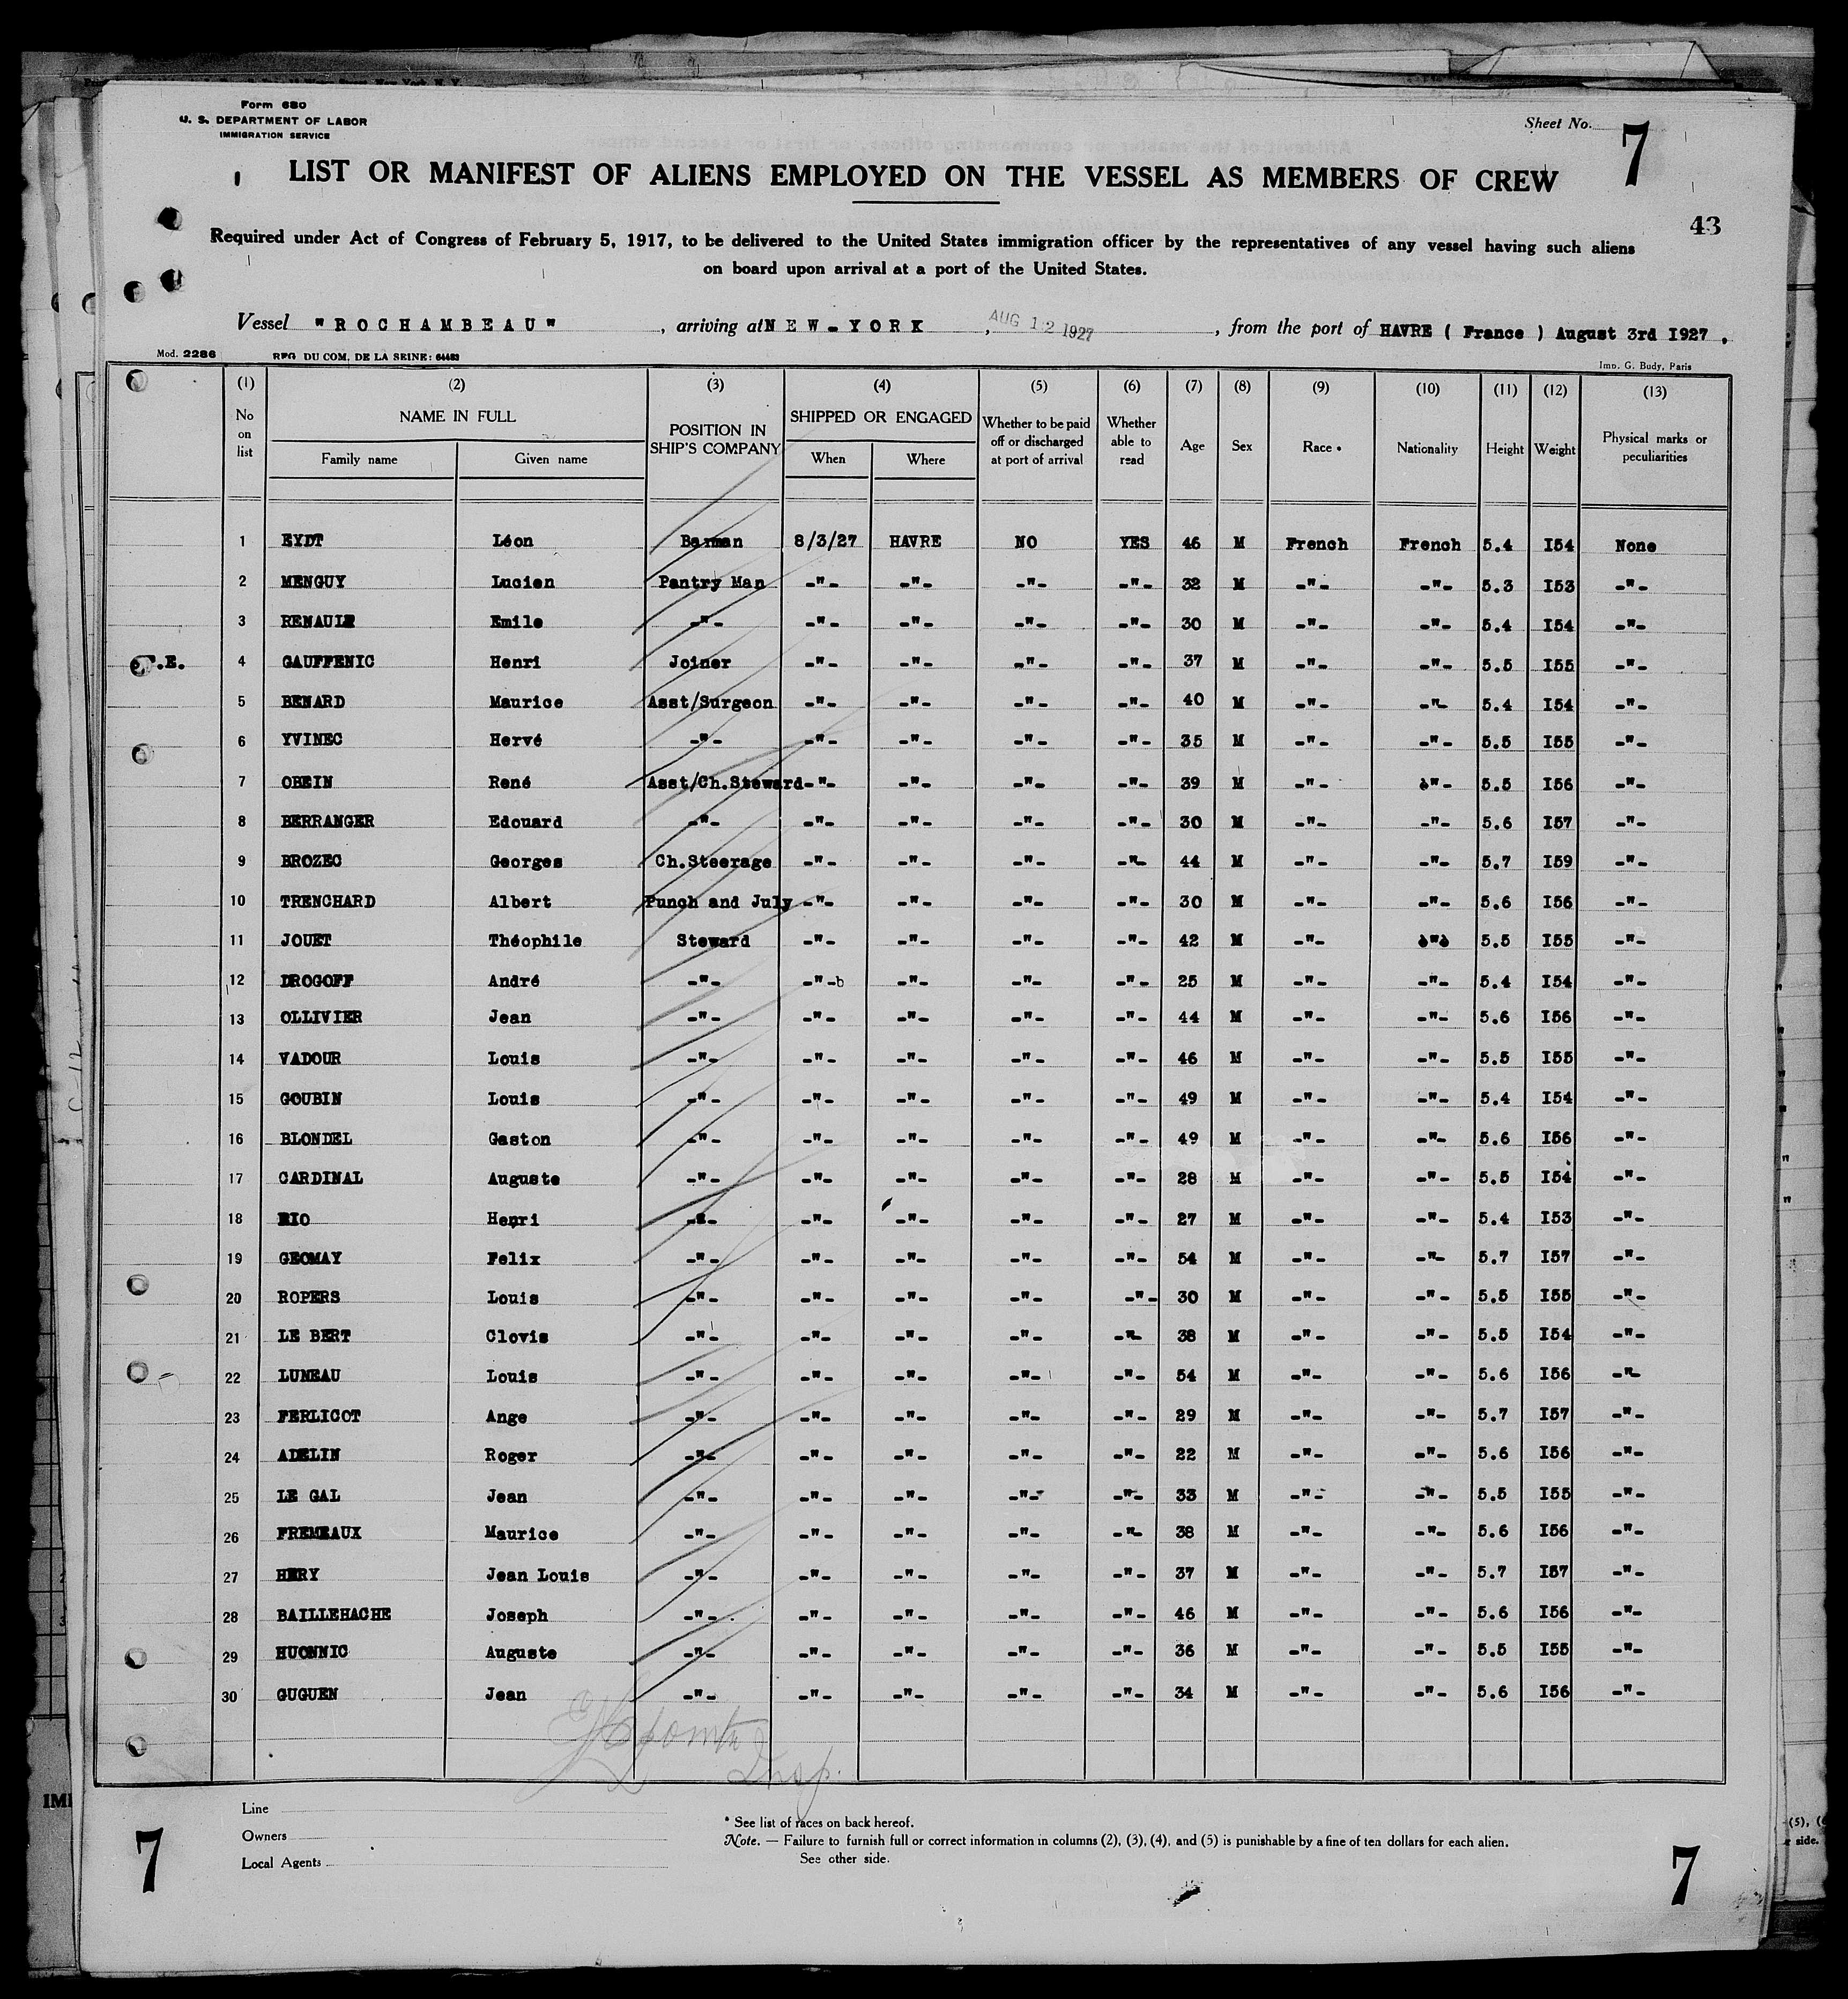 Form 680
U. S. DEPARTMENT OF LABOR
IMMIGRATION SERVICE
Sheet No. 7
LIST OR MANIFEST OF ALIENS EMPLOYED ON THE VESSEL AS MEMBERS OF CREW
43
Required under Act of Congress of February 5, 1917, to be delivered to the United States immigration officer by the representatives of any vessel having such aliens
on board upon arrival at a port of the United States.
Vessel "ROCHAMBEAU" , arriving at NEW-YORK , AUG 12 1927 , from the port of HAVRE ( France ) August 3rd I927 .
Mod. 2286 REG. DU COM. DE LA SEINE: 64483 Imp. G. Budy, Paris
(1) (2) (3) (4) (5) (6) (7) (8) (9) (10) (11) (12) (13)
No on list NAME IN FULL Family name Given name POSITION IN SHIP'S COMPANY SHIPPED OR ENGAGED When Where Whether to be paid off or discharged at port of arrival Whether able to read Age Sex Race * Nationality Height Weight Physical marks or peculiarities
1 EYDT Léon Barman 8/3/27 HAVRE NO YES 46 M French French 5.4 I54 None
2 MENGUY Lucien Pantry Man -"- -"- -"- -"- 32 M -"- -"- 5.3 I53 -"-
3 RENAULT Emile -"- -"- -"- -"- -"- 30 M -"- -"- 5.4 I54 -"-
4 GAUFFENIC Henri Joiner -"- -"- -"- -"- 37 M -"- -"- 5.5 I55 -"-
5 BENARD Maurice Asst/Surgeon -"- -"- -"- -"- 40 M -"- -"- 5.4 I54 -"-
6 YVINEC Hervé -"- -"- -"- -"- -"- 35 M -"- -"- 5.5 I55 -"-
7 OBEIN René Asst/Ch.Steward -"- -"- -"- -"- 39 M -"- -"- 5.5 I56 -"-
8 BERRANGER Edouard -"- -"- -"- -"- -"- 30 M -"- -"- 5.6 I57 -"-
9 BROZEC Georges Ch.Steerage -"- -"- -"- -"- 44 M -"- -"- 5.7 I59 -"-
10 TRENCHARD Albert Punch and July -"- -"- -"- -"- 30 M -"- -"- 5.6 I56 -"-
11 JOUET Théophile Steward -"- -"- -"- -"- 42 M -"- -"- 5.5 I55 -"-
12 DROGOFF André -"- -"- -"- -"- -"- 25 M -"- -"- 5.4 I54 -"-
13 OLLIVIER Jean -"- -"- -"- -"- -"- 44 M -"- -"- 5.6 I56 -"-
14 VADOUR Louis -"- -"- -"- -"- -"- 46 M -"- -"- 5.5 I55 -"-
15 GOUBIN Louis -"- -"- -"- -"- -"- 49 M -"- -"- 5.4 I54 -"-
16 BLONDEL Gaston -"- -"- -"- -"- -"- 49 M -"- -"- 5.6 I56 -"-
17 CARDINAL Auguste -"- -"- -"- -"- -"- 28 M -"- -"- 5.5 I54 -"-
18 RIO Henri -"- -"- -"- -"- -"- 27 M -"- -"- 5.4 I53 -"-
19 GEOMAY Felix -"- -"- -"- -"- -"- 54 M -"- -"- 5.7 I57 -"-
20 ROPERS Louis -"- -"- -"- -"- -"- 30 M -"- -"- 5.5 I55 -"-
21 LE BERT Clovis -"- -"- -"- -"- -"- 38 M -"- -"- 5.5 I54 -"-
22 LUNEAU Louis -"- -"- -"- -"- -"- 54 M -"- -"- 5.6 I56 -"-
23 FERLICOT Ange -"- -"- -"- -"- -"- 29 M -"- -"- 5.7 I57 -"-
24 ADELIN Roger -"- -"- -"- -"- -"- 22 M -"- -"- 5.6 I56 -"-
25 LE GAL Jean -"- -"- -"- -"- -"- 33 M -"- -"- 5.5 I55 -"-
26 FREMEAUX Maurice -"- -"- -"- -"- -"- 38 M -"- -"- 5.6 I56 -"-
27 HERY Jean Louis -"- -"- -"- -"- -"- 37 M -"- -"- 5.7 I57 -"-
28 BAILLEHACHE Joseph -"- -"- -"- -"- -"- 46 M -"- -"- 5.6 I56 -"-
29 HUONNIC Auguste -"- -"- -"- -"- -"- 36 M -"- -"- 5.5 I55 -"-
30 GUGUEN Jean -"- -"- -"- -"- -"- 34 M -"- -"- 5.6 I56 -"-
Insp.
Line
Owners
Local Agents
* See list of races on back hereof.
Note. — Failure to furnish full or correct information in columns (2), (3), (4), and (5) is punishable by a fine of ten dollars for each alien.
See other side.
7
7